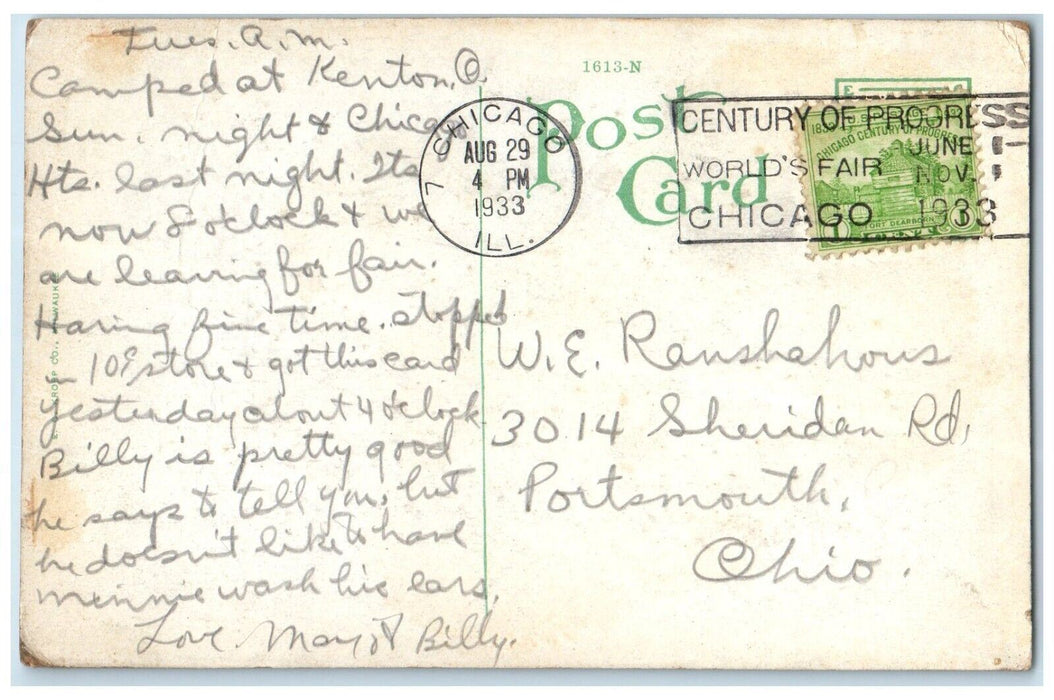 Tues. A.M.
Camped at Kenton, O.
Sun. night & Chicago
Hts. last night. Its
now 8 o'clock & we
are leaving for fair.
Having fine time. stopped
in 10¢ store & got this card
yesterday about 4 o'clock
Billy is pretty good
he says to tell you, but
he doesn't like to have
Minnie wash his ears.
Love Mary & Billy.
1613-N
Post
Card
CHICAGO
7
AUG 29
4 PM
1933
ILL.
CENTURY OF PROGRESS
WORLD'S FAIR
CHICAGO
JUNE 1-
NOV. 1
1933
CHICAGO CENTURY OF PROGRESS
FORT DEARBORN
1 CENT
W. E. Ranshahous
3014 Sheridan Rd,
Portsmouth,
Ohio.